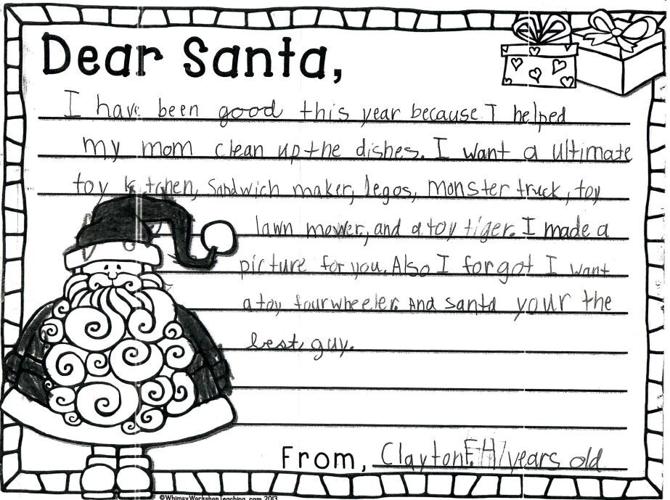 Dear Santa,
I have been good this year because I helped
my mom clean up the dishes. I want a ultimate
toy kitchen, sandwich maker, legos, monster truck, toy
lawn mower, and a toy tiger. I made a
picture for you. Also I forgot I want
a toy fourwheeler. And santa your the
best guy.
From, Clayton F. H 7 years old
©WhimsyWorkshopTeaching.com 2013